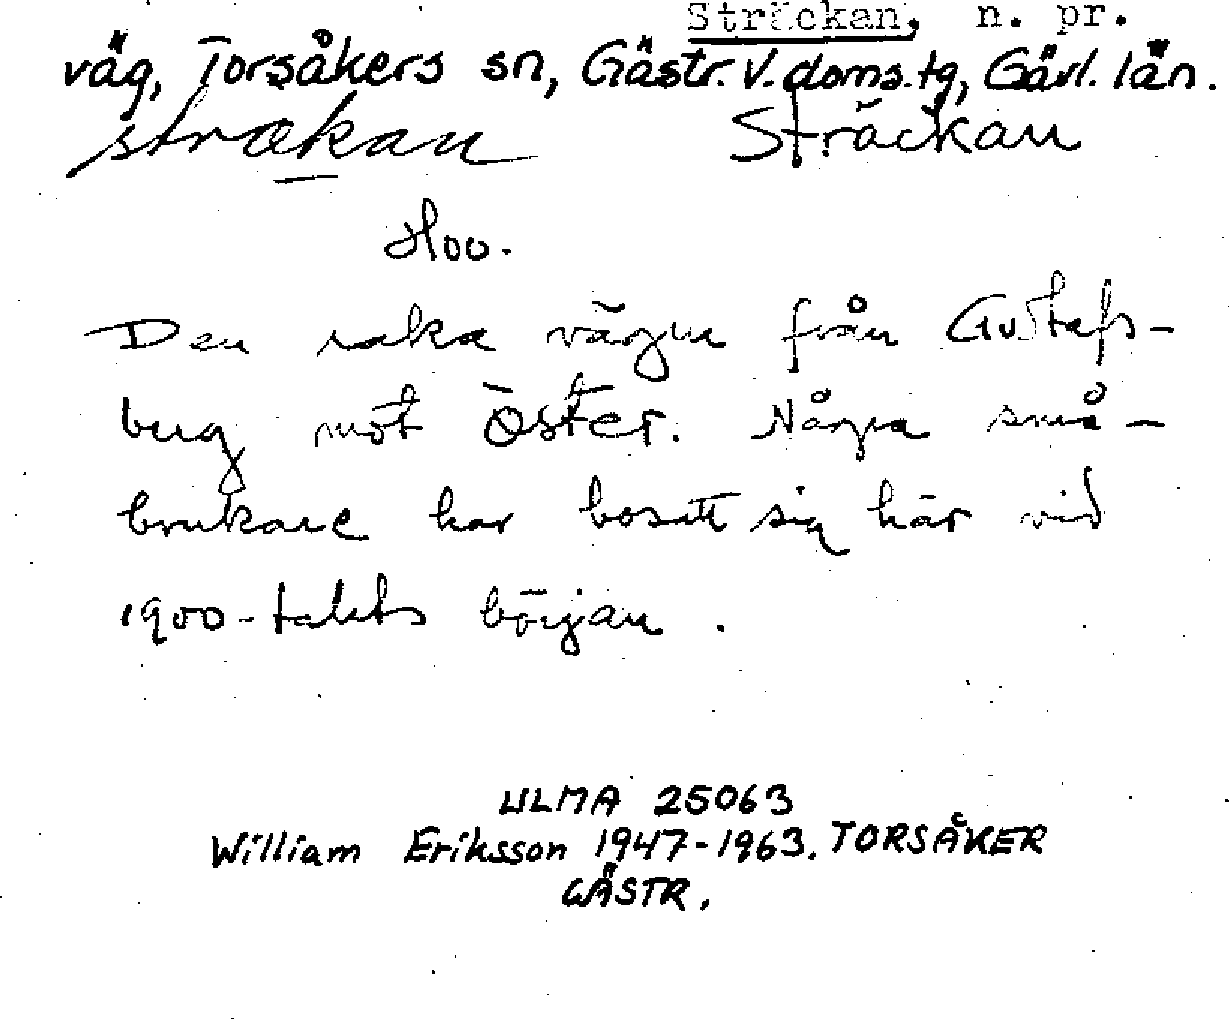 Sträckan, n. pr.
väg, Torsåkers sn, Gästr. V. doms.tg, Gävl. län.
strækan Sträckan
Hoo.
Den raka vägen från Gustafs-
berg mot öster. Några små-
brukare har bosatt sig här vid
1900-talets början.
ULMA 25063
William Eriksson 1947-1963. TORSÅKER
GÄSTR.